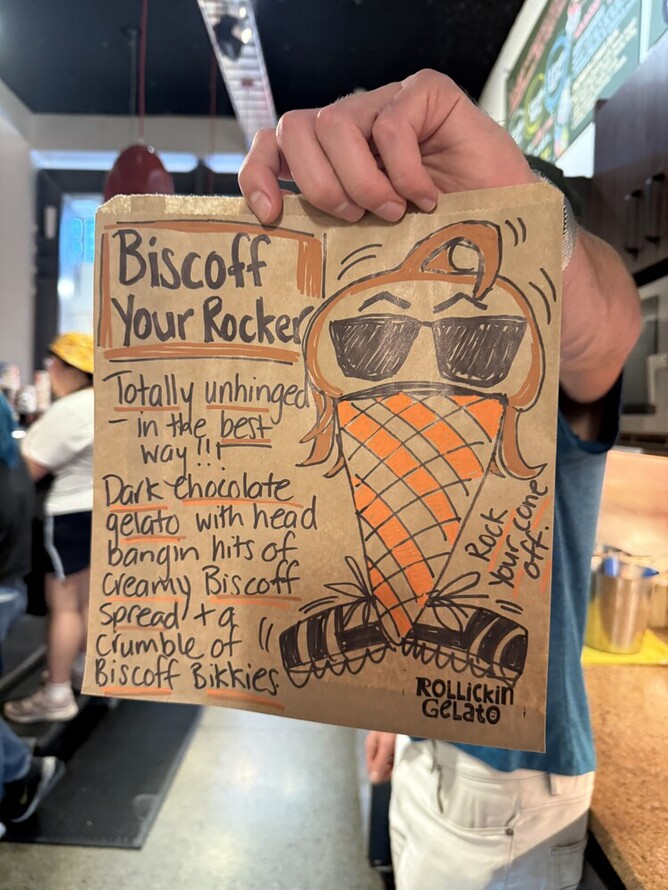 Biscoff
Your Rocker
Totally unhinged
- in the best
way!!!
Dark Chocolate
gelato with head
bangin hits of
creamy Biscoff
spread + a
crumble of
Biscoff Bikkies
Rock
your cone
off!
ROLLICKIN
GELATO